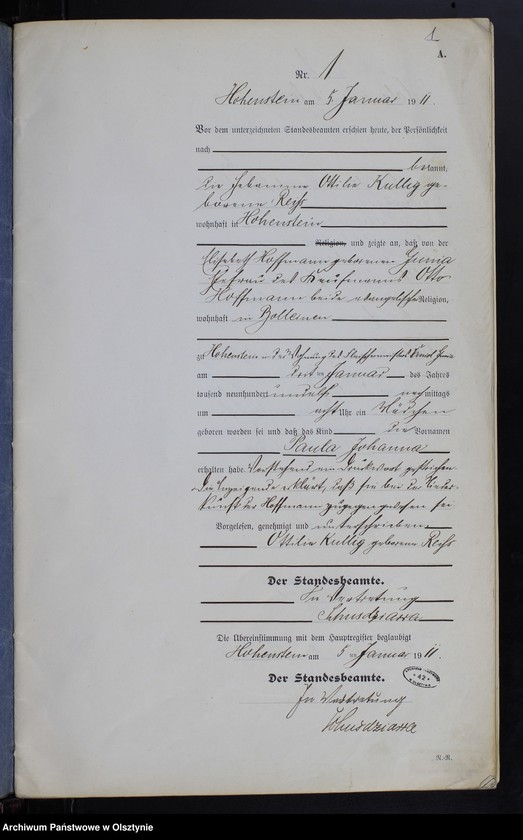 1
A.
Nr. 1
Hohenstein am 5. Januar 1911.
Vor dem unterzeichneten Standesbeamten erschien heute, der Persönlichkeit
nach
bekannt,
die Hebamme Ottilie Kullig ge-
borene
wohnhaft in Hohenstein
Religion, und zeigte an, daß von der
Elisabeth Hoffmann geborenen
Ehefrau des Kaufmanns Otto
Hoffmann beide evangelischer Religion,
wohnhaft in
zu Hohenstein in der Wohnung des Fleischermeisters
am Januar des Jahres
tausend neunhundert und elf nachmittags
um acht Uhr ein Mädchen
geboren worden sei und daß das Kind die Vornamen
Paula Johanna
erhalten habe. Vorstehend ein Druckwort gestrichen.
Die Anzeigende erklärt, daß sie bei der Nieder-
kunft der Hoffmann zugegen gewesen sei
Vorgelesen, genehmigt und unterschrieben
Ottilie Kullig geborene
Der Standesbeamte.
In Vertretung
Die Übereinstimmung mit dem Hauptregister beglaubigt
Hohenstein am 5. Januar 1911.
Der Standesbeamte.
In Vertretung
42
N.-R.
Archiwum Państwowe w Olsztynie